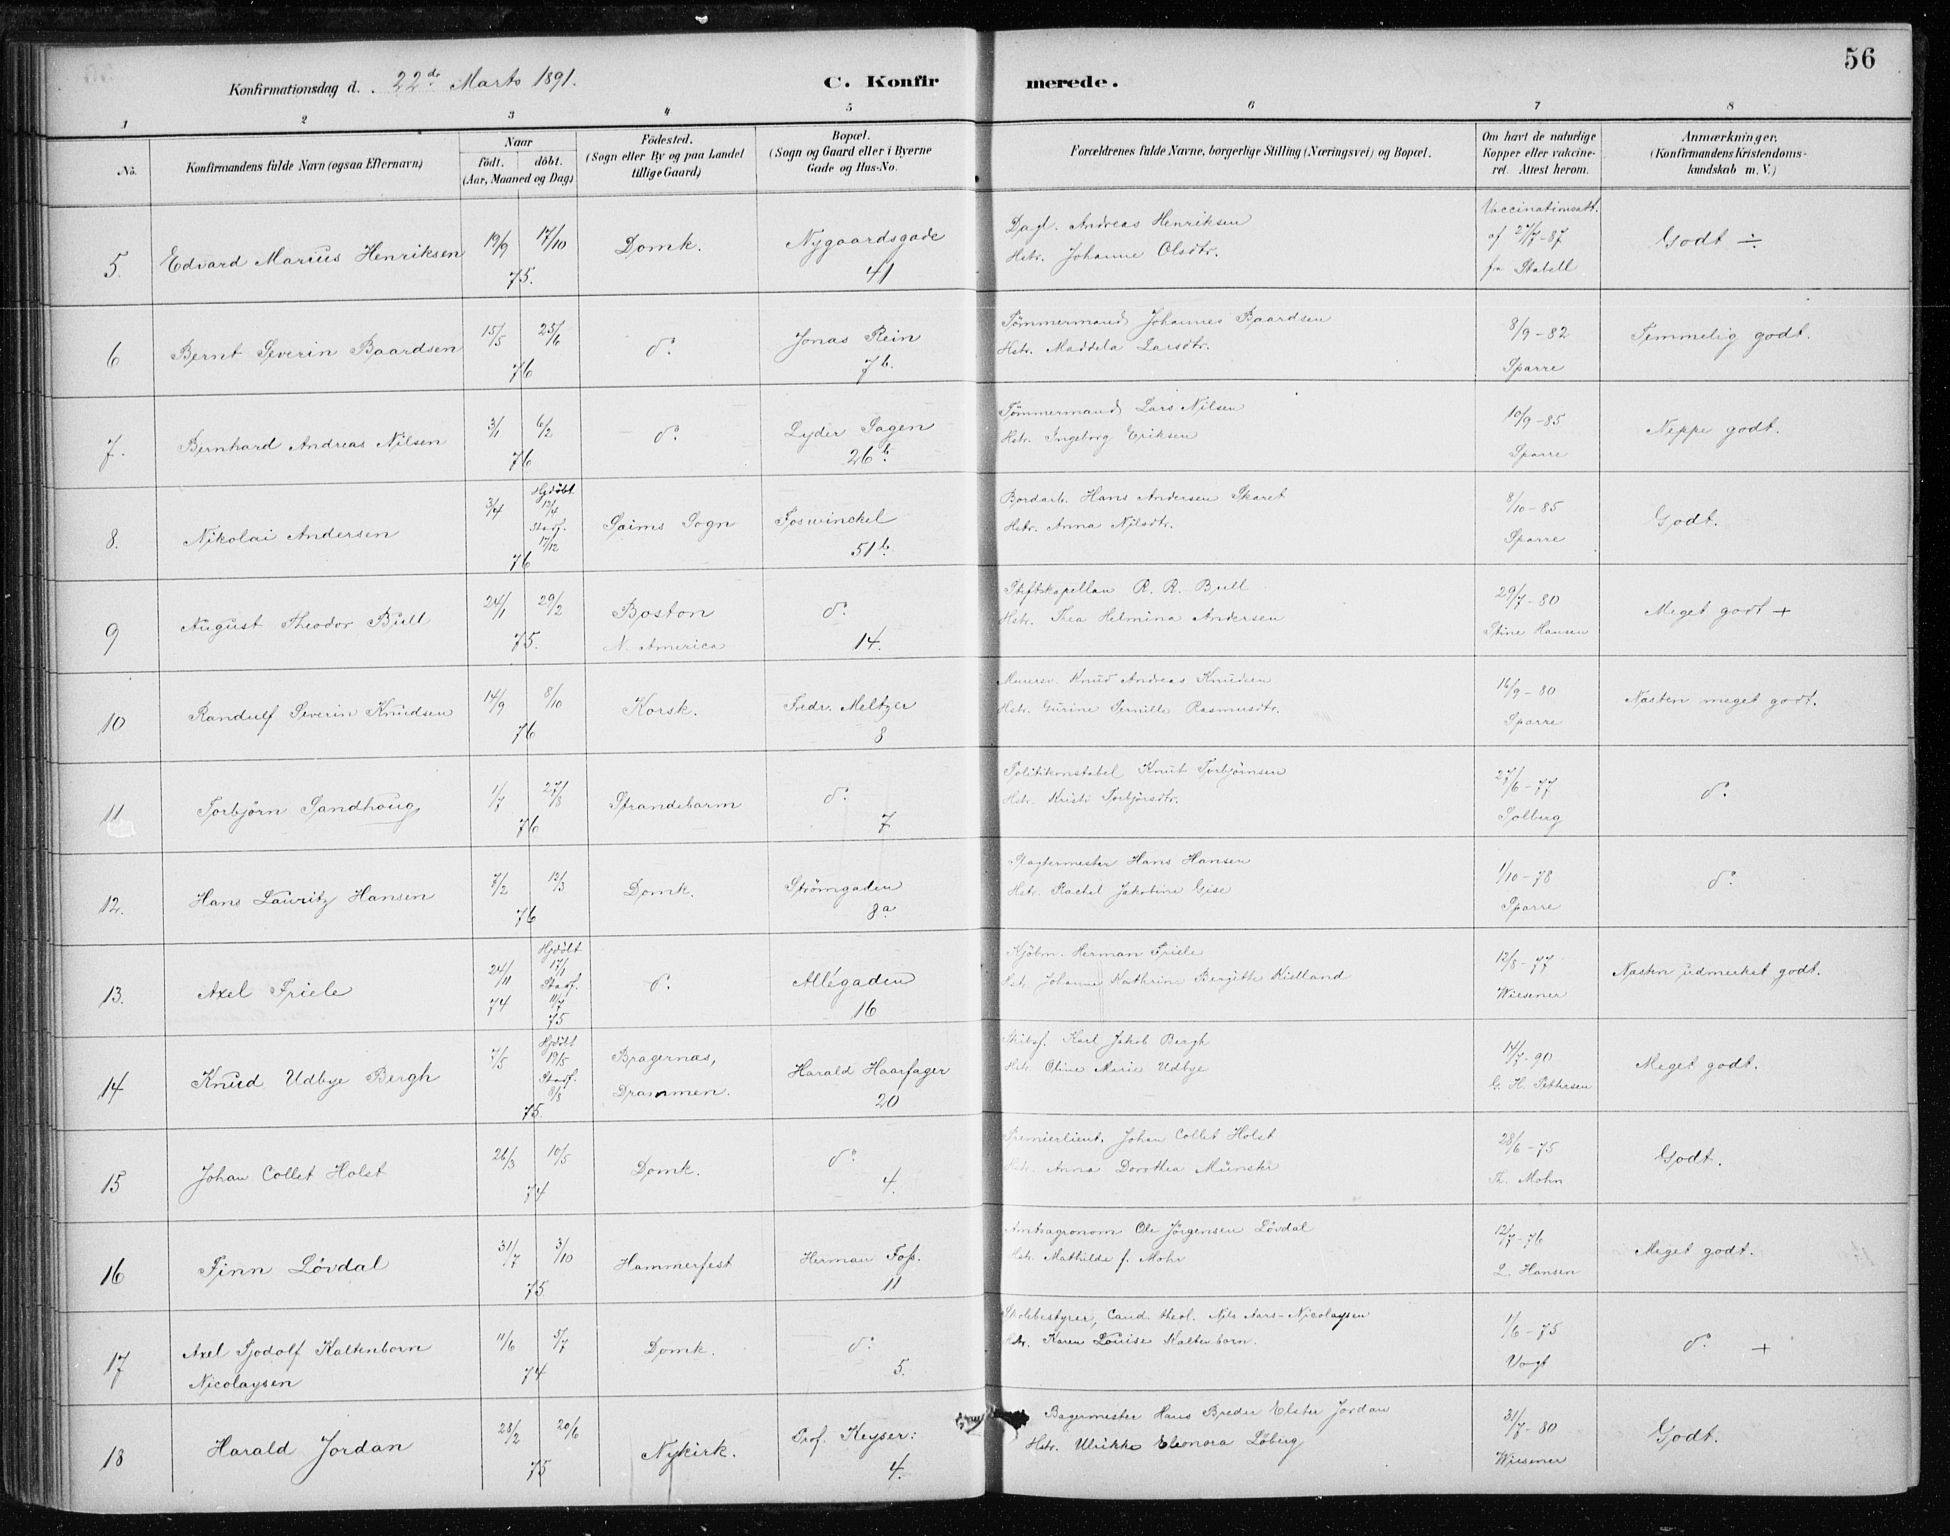 56
Konfirmationsdag d. 22de Marts 1891. C. Konfirmerede.
1 2 3 4 5 6 7 8
No. Konfirmandens fulde Navn (ogsaa Efternavn) Naar födt. döbt. (Aar, Maaned og Dag) Födested. (Sogn eller By og paa Landet tillige Gaard) Bopæl. (Sogn og Gaard eller i Byerne Gade og Hus-No. Forældrenes fulde Navne, borgerlige Stilling (Næringsvei) og Bopæl. Om havt de naturlige Kopper eller vakcineret. Attest herom. Anmærkninger. (Konfirmandens Kristendomskundskab m. V.)
5 Edvard Marius Henriksen 19/9 17/10 75. Domk. Nygaardsgade 41 Dagl. Andreas Henriksen Hstr. Johanne Olsdtr. Vaccinationsatt. af 27/7-87 fra Stabell Godt ÷
6 Bernt Severin Baardsen 15/5 25/6 76 do. Jonas Rein 7b. Tömmermand Johannes Baardsen Hstr. Maddela Larsdtr. 8/9-82 Sparre Temmelig godt.
7. Bernhard Andreas Nilsen 3/1 6/2 76 do. Lyder Sagen 26b. Tömmermand Lars Nilsen Hstr. Ingeborg Eriksen 10/9-85 Sparre Neppe godt.
8. Nikolai Andersen 3/4 Hjdöbt 13/4 Stadf. 17/12 76 Saims Sogn Foswinckel 51b. Bordarb. Hans Andersen Skaret Hstr. Anna Nilsdtr. 8/10-85 Sparre Godt.
9 August Theodor Bull 24/1 29/2 75. Boston N. America do. 14. Stiftskapellan R. R. Bull Hstr. Thea Helmina Andersen 29/7-80 Stine Hansen Meget godt +
10 Randulf Severin Knudsen 14/9 8/10 76 Korsk. Fredr. Meltzer 8 Murersv. Knud Andreas Knudsen Hstr. Gurine Pernille Rasmusdtr. 16/9-80 Sparre Næsten meget godt.
11 Torbjörn Sandhaug 1/7 27/8 76 Strandebarm do. 7 Politikonstabel Knut Torbjörnsen Hstr. Kristi Torbjörsdtr. 27/6-77 Solberg do.
12. Hans Lauritz Hansen 7/2 12/3 76 Domk. Strömgaden 8a Slagtermester Hans Hansen Hstr. Rachel Jakobine Gise 1/10-78 Sparre do.
13. Axel Friele 24/11 74 Hjdöbt 17/1 Stadf. 11/7 75 do. Allégaden 16 Kjöbm. Herman Friele Hst. Johanne Kathrine Bergitte Kielland 12/8-77 Wiesener Næsten udmerket godt.
14 Knud Udbye Bergh 7/5 Hjdöbt 19/5 Stadf. 8/8 75. Bragernæs, Drammen. Harald Haarfager 20 Skibsf. Karl Jakob Bergh Hstr. Oline Marie Udbye 14/7-90 G. H. Petersen Meget godt.
15 Johan Collet Holst 26/3 10/5 74 Domk. do. 4. Premierlieut. Johan Collet Holst Hstr. Anna Dorothea Münster 28/6-75 Th. Mohn Godt.
16 Finn Lövdal 31/7 3/10 75 Hammerfest Herman Foss. 11 Amtsagronom Ole Jörgensen Lövdal Hstr. Mathilde f. Mohr 12/7-76 L. Hansen Meget godt.
17 Axel Tjodolf Kaltenborn Nicolaysen 11/6 5/7 74 Domk. do. 5. Skolebestyrer, Cand. theol. Nils Aars-Nicolaysen Hstr. Karen Louise Kaltenborn. 1/6-75 Vogt do. +
18 Harald Jordan 28/2 20/6 75 Nykirk. Prof. Keyser: 4. Bagermester Hans Breder Elster Jordan Hstr. Ulrikke Eleonora Löberg 31/7-80 Wiesener Godt.